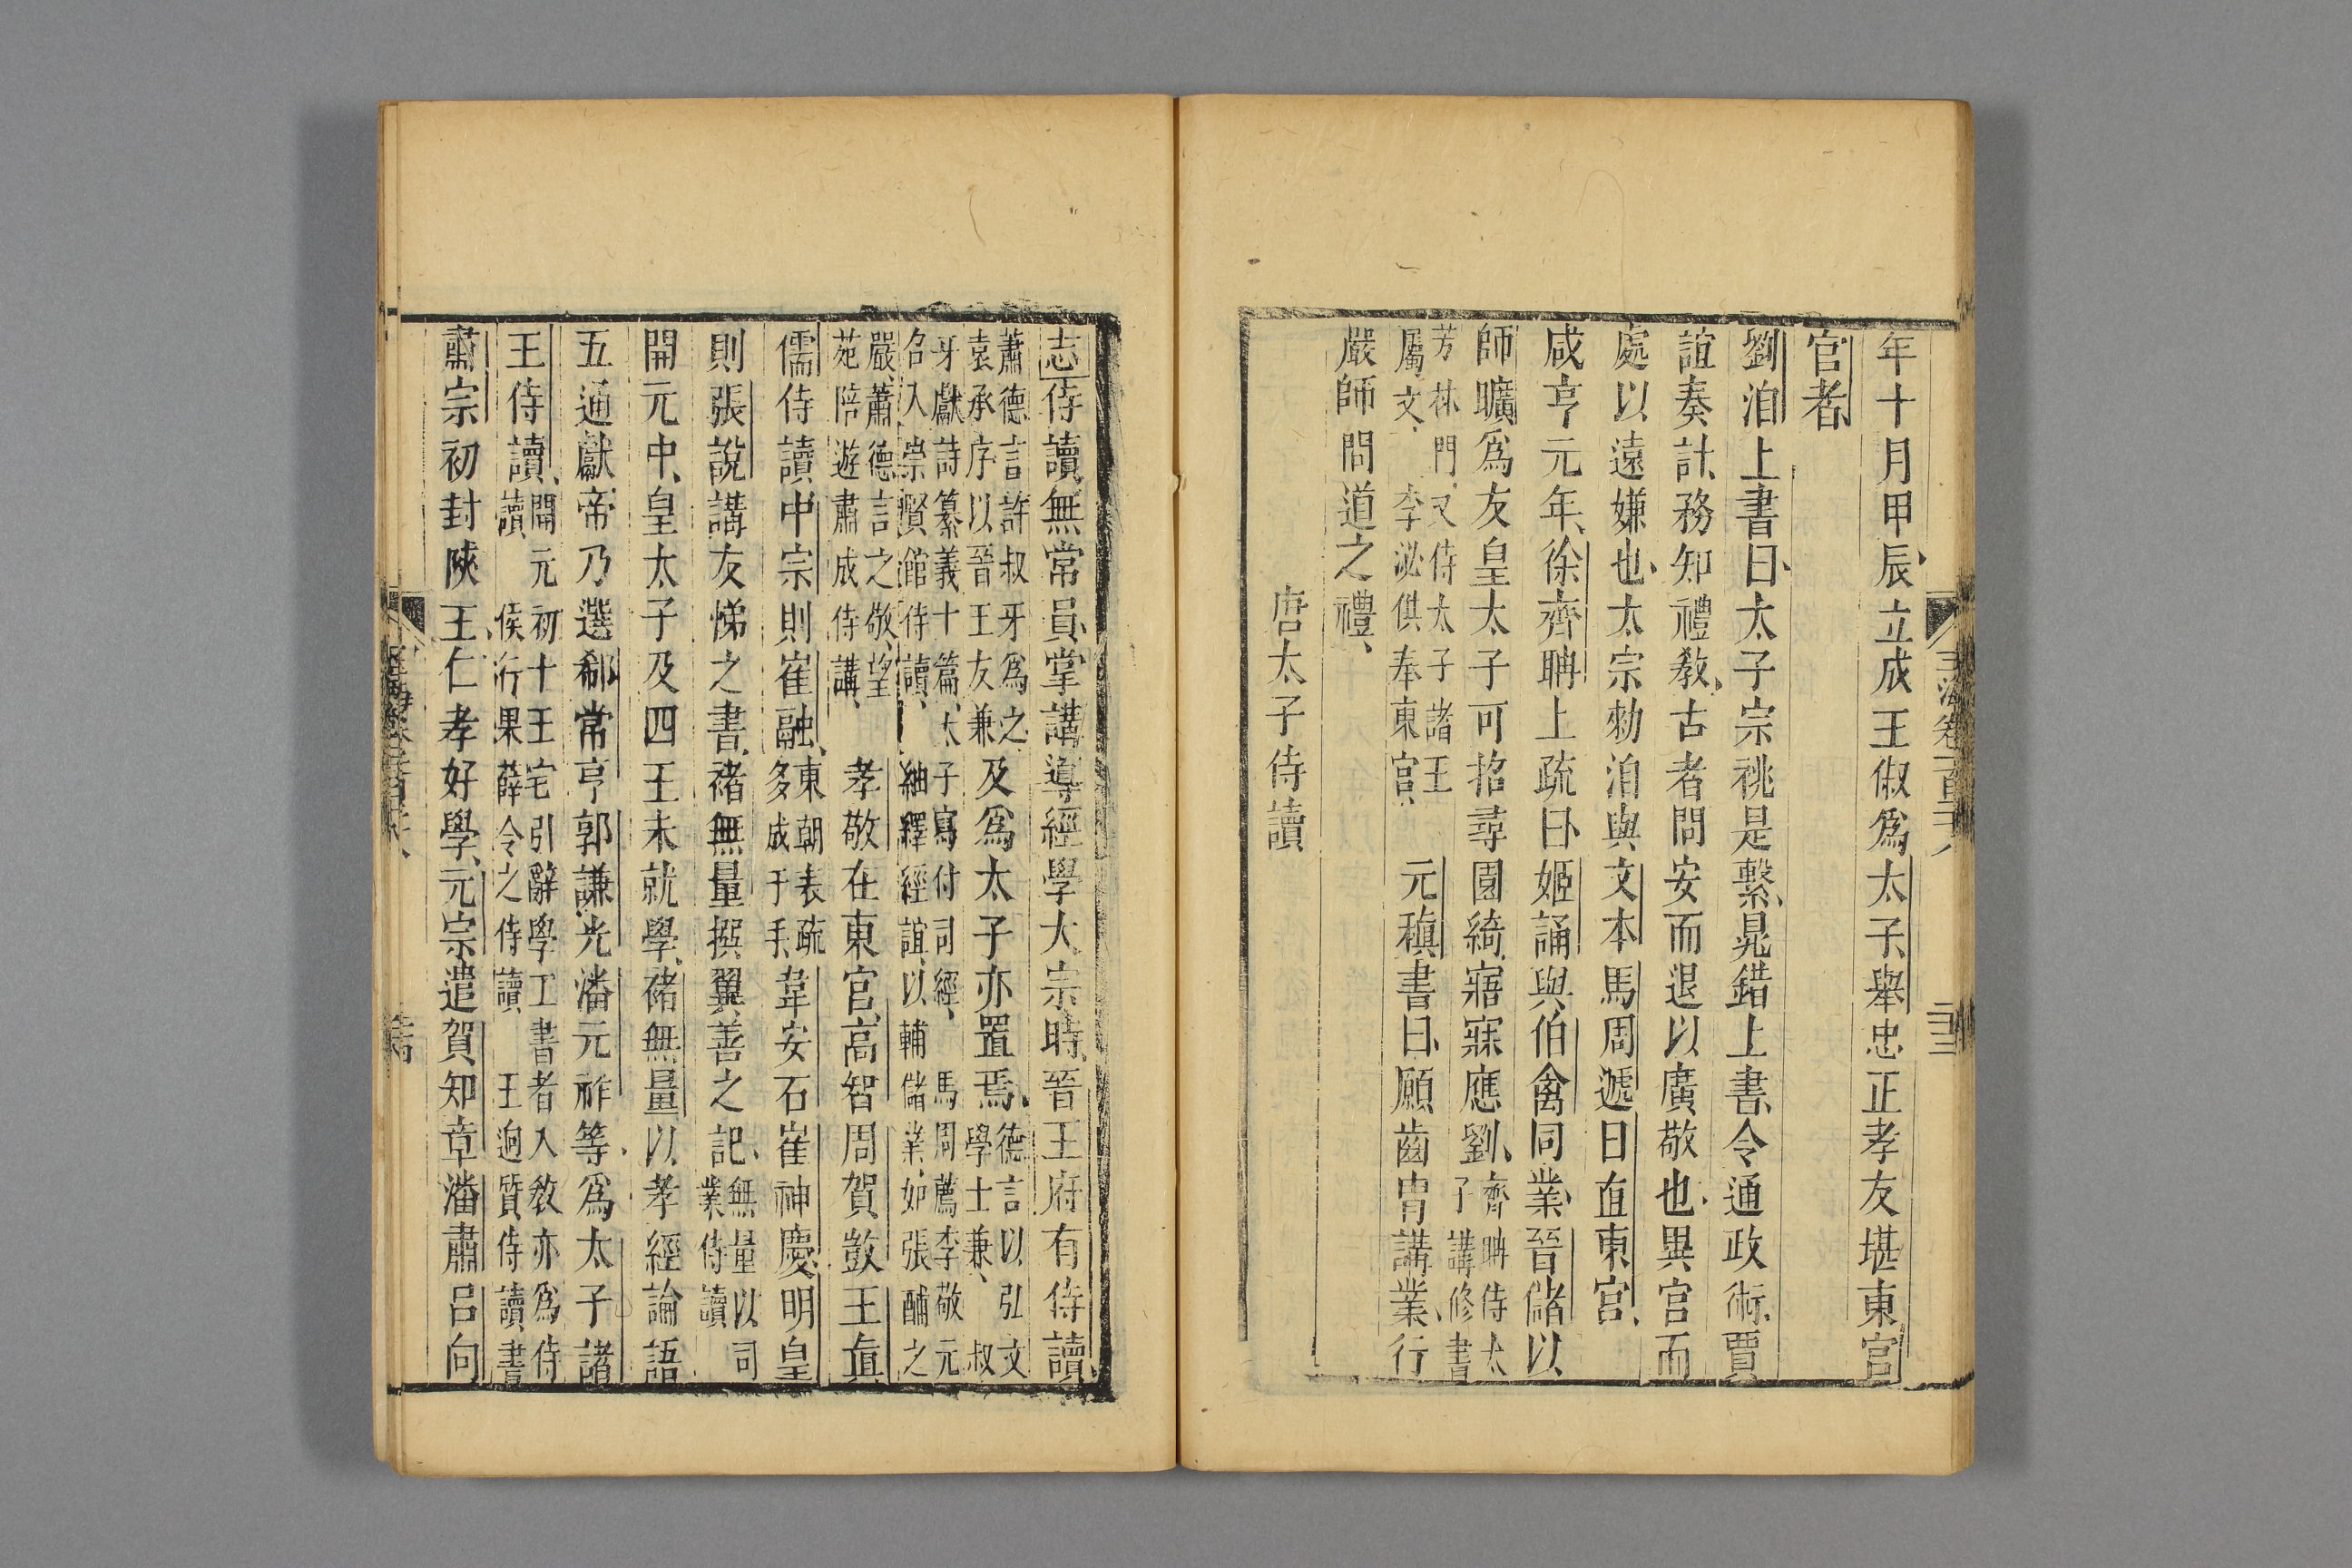 年十月甲辰立成王俶爲太子舉忠正孝友堪東宮
官者
劉洎上書曰太子宗祧是繫晁錯上書令通政術賈
誼奏計務知禮教古者問安而退以廣敬也異宮而
處以遠嫌也太宗勑洎與文本馬周遞日直東宮
咸亨元年徐齊聃上疏曰姬誦與伯禽同業晉儲以
師曠爲友皇太子可招尋園綺寤寐應劉齊聃侍太
子講修書
芳林門又侍太子諸王
屬文 李泌供奉東宮 元稹書曰願齒胄講業行
嚴師問道之禮
唐太子侍讀
玉海卷一百二十八
二三
志侍讀無常員掌講導經學太宗時晉王府有侍讀
蕭德言許叔牙爲之
袁承序以晉王友兼 及爲太子亦置焉德言以弘文
學士兼 叔
牙獻詩纂義十篇太子寫付司經 馬周薦李敬元
召入崇賢館侍讀 紬繹經誼以輔儲業如張酺之
嚴蕭德言之敬望
苑陪遊肅成侍講 孝敬在東宮高智周賀敱王眞
儒侍讀中宗則崔融東朝表疏
多成于手韋安石崔神慶明皇
則張說講友悌之書褚無量撰翼善之記無量以司
業侍讀
開元中皇太子及四王未就學褚無量以孝經論語
五通獻帝乃選郗常亨郭謙光潘元祚等爲太子諸
王侍讀開元初十王宅引辭學工書者入教亦爲侍
讀 侯行果薛令之侍讀 王迥質侍讀書
肅宗初封陝王仁孝好學元宗遣賀知章潘肅呂向